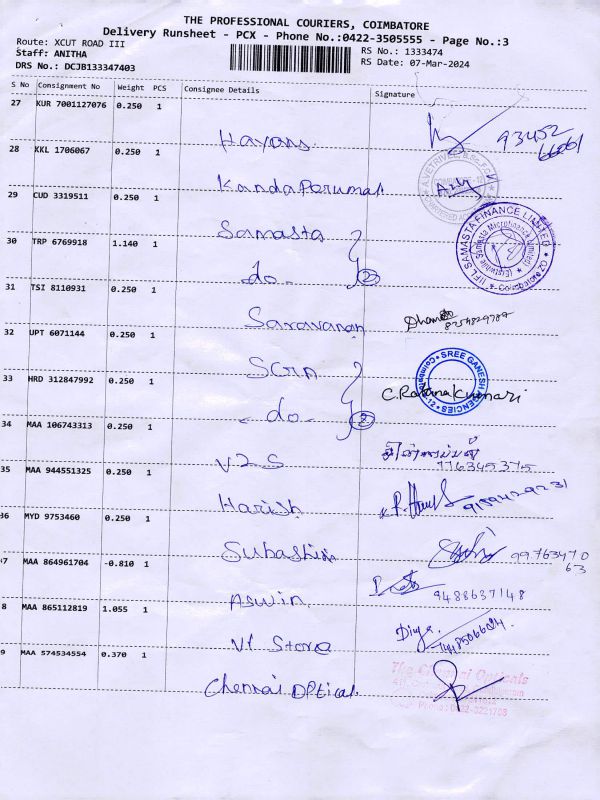 THE PROFESSIONAL COURIERS, COIMBATORE
Delivery Runsheet - PCX - Phone No.:0422-3505555 - Page No.:3
Route: XCUT ROAD III
RS No.: 1333474
Staff: ANITHA
RS Date: 07-Mar-2024
DRS No.: DCJB133347403
S No Consignment No Weight PCS Consignee Details Signature
27 KUR 7001127076 0.250 1
Hayans 93452
28 KKL 1706067 0.250 1
Kanda Perumal
29 CUD 3319511 0.250 1
Samasta
IIFL SAMASTA FINANCE LIMITED
30 TRP 6769918 1.140 1
-do- 2
31 TSI 8110931 0.250 1
Saravanan
32 UPT 6071144 0.250 1
SGA
SREE GANESH AGENCIES
33 HRD 312847992 0.250 1
C. Ratna Kumari
-do- 2
34 MAA 106743313 0.250 1
V2S 776345375
35 MAA 944551325 0.250 1
Harish
36 MYD 9753460 0.250 1
Subashini 99763470
63
37 MAA 864961704 -0.810 1
Aswin 9488637148
8 MAA 865112819 1.055 1
Divya
V1 Store
9 MAA 574534554 0.370 1
The Chennai Opticals
Chennai Optical